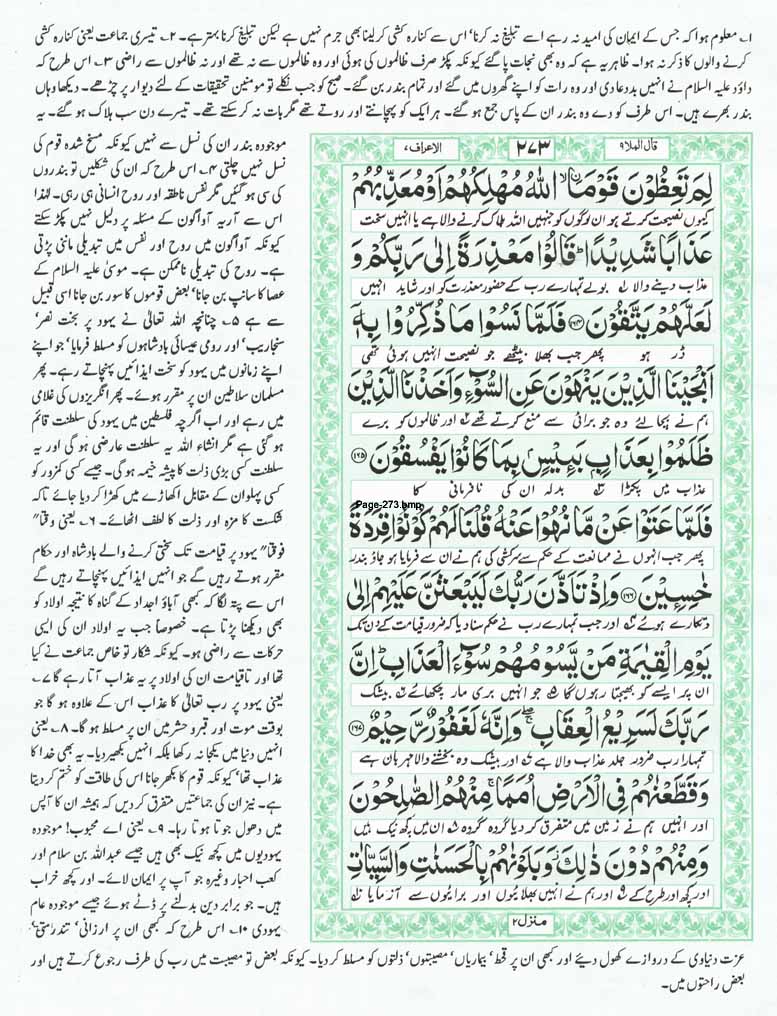 ۱۔ معلوم ہوا کہ جس کے ایمان کی امید نہ رہے اسے تبلیغ نہ کرنا' اس سے کنارہ کشی کر لینا بھی جرم نہیں ہے لیکن تبلیغ کرنا بہتر ہے۔ ۲۔ تیسری جماعت یعنی کنارہ کشی
کرنے والوں کا ذکر نہ ہوا۔ ظاہر یہ ہے کہ وہ بھی نجات پا گئے کیونکہ پکڑ صرف ظالموں کی ہوئی اور وہ ظالموں سے نہ تھے اور نہ ظالموں سے راضی ۳۔ اس طرح کہ
داؤد علیہ السلام نے انہیں بددعا دی اور وہ رات کو اپنے گھروں میں گئے اور تمام بندر بن گئے۔ صبح کو جب نکلے تو مومنین تحقیقات کے لئے دیوار پر چڑھے۔ دیکھا وہاں
بندر بھرے ہیں۔ اس طرف کو دے وہ بندر ان کے پاس جمع ہو گئے۔ ہر ایک کو پہچانتے اور روتے تھے مگر بات نہ کر سکتے تھے۔ تیسرے دن سب ہلاک ہو گئے۔ یہ
موجودہ بندر ان کی نسل سے نہیں کیونکہ مسخ شدہ قوم کی
نسل نہیں چلتی ۴۔ اس طرح کہ ان کی شکلیں تو بندروں
کی سی ہو گئیں مگر نفس ناطقہ اور روح انسانی ہی رہی۔ لہٰذا
اس سے آریہ آواگون کے مسئلہ پر دلیل نہیں پکڑ سکتے
کیونکہ آواگون میں روح اور نفس میں تبدیلی ماننی پڑتی
ہے۔ روح کی تبدیلی ناممکن ہے۔ موسیٰ علیہ السلام کے
عصا کا سانپ بن جانا' بعض قوموں کا سور بن جانا اسی قبیل
سے ہے ۵۔ چنانچہ اللہ تعالیٰ نے یہود پر بخت نصر'
سنجاریب' اور رومی عیسائی بادشاہوں کو مسلط فرمایا' جو اپنے
اپنے زمانوں میں یہود کو سخت ایذائیں پہنچاتے رہے۔ پھر
مسلمان سلاطین ان پر مقرر ہوئے۔ پھر انگریزوں کی غلامی
میں رہے اور اب اگرچہ فلسطین میں یہود کی سلطنت قائم
ہو گئی ہے مگر انشاء اللہ یہ سلطنت عارضی ہو گی اور یہ
سلطنت کسی بڑی ذلت کا پیش خیمہ ہو گی۔ جیسے کسی کمزور کو
کسی پہلوان کے مقابل اکھاڑے میں کھڑا کر دیا جائے تاکہ
شکست کا مزہ اور ذلت کا لطف اٹھائے۔ ۶۔ یعنی وقتاً"
فوقتاً" یہود پر قیامت تک سختی کرنے والے بادشاہ اور حکام
مقرر ہوتے رہیں گے جو انہیں ایذائیں پہنچاتے رہیں گے
اس سے پتہ لگا کہ کبھی آباؤ اجداد کے گناہ کا نتیجہ اولاد کو
بھی دیکھنا پڑتا ہے۔ خصوصاً جب یہ اولاد ان کی ایسی
حرکات سے راضی ہو۔ کیونکہ شکار تو خاص جماعت نے کیا
تھا اور تاقیامت ان کی اولاد پر یہ عذاب آتا رہے گا ۷۔
یعنی یہود پر رب تعالیٰ کا عذاب اس کے علاوہ ہو گا جو
بوقت موت اور قبر و حشر میں ان پر مسلط ہو گا۔ ۸۔ یعنی
انہیں دنیا میں یکجا نہ رکھا بلکہ انہیں بکھیر دیا۔ یہ بھی خدا کا
عذاب تھا' کیونکہ قوم کا بکھر جانا اس کی طاقت کو ختم کر دیتا
ہے۔ نیز ان کی جماعتیں متفرق کر دیں کہ ہمیشہ ان کا آپس
میں دھول جوتا ہوتا رہا۔ ۹۔ یعنی اے محبوب! موجودہ
یہودیوں میں کچھ نیک بھی ہیں جیسے عبداللہ بن سلام اور
کعب احبار وغیرہ جو آپ پر ایمان لائے۔ اور کچھ خراب
ہیں۔ جو برابر دین بدلنے پر ڈٹے ہوئے جیسے موجودہ عام
یہودی ۱۰۔ اس طرح کہ کبھی ان پر ارزانی' تندرستی'
قال الملا ۹ ۲۷۳ الاعراف ۷
لِمَ تَعِظُوْنَ قَوْمَا ۙ اللّٰهُ مُهْلِكُهُمْ اَوْ مُعَذِّبُهُمْ
کیوں نصیحت کرتے ہو ان لوگوں کو جنہیں اللہ ہلاک کرنے والا ہے یا انہیں سخت
عَذَابًا شَدِيْدًا ؕ قَالُوْا مَعْذِرَةً اِلٰى رَبِّكُمْ وَ
عذاب دینے والا بولے تمہارے رب کے حضور معذرت کو اور شاید انہیں
لَعَلَّهُمْ يَتَّقُوْنَ ۝۱۶۴ فَلَمَّا نَسُوْا مَا ذُكِّرُوْا بِهٖۤ
ڈر ہو پھر جب بھلا بیٹھے جو نصیحت انہیں ہوئی تھی
اَنْجَيْنَا الَّذِيْنَ يَنْهَوْنَ عَنِ السُّوْٓءِ وَ اَخَذْنَا الَّذِيْنَ
ہم نے بچا لئے وہ جو برائی سے منع کرتے تھے اور ظالموں کو برے
ظَلَمُوْا بِعَذَابٍۭ بَـِٕيْسٍۭ بِمَا كَانُوْا يَفْسُقُوْنَ ۝۱۶۵
عذاب میں پکڑا بدلہ ان کی نافرمانی کا
Page-273.bmp
فَلَمَّا عَتَوْا عَنْ مَّا نُهُوْا عَنْهُ قُلْنَا لَهُمْ كُوْنُوْا قِرَدَةً
پھر جب انہوں نے ممانعت کے حکم سے سرکشی کی ہم نے ان سے فرمایا ہو جاؤ بندر
خٰسِـِٕيْنَ ۝۱۶۶ وَ اِذْ تَاَذَّنَ رَبُّكَ لَيَبْعَثَنَّ عَلَيْهِمْ اِلٰى
دھتکارے ہوئے اور جب تمہارے رب نے حکم سنا دیا کہ ضرور قیامت کے دن تک
يَوْمِ الْقِيٰمَةِ مَنْ يَّسُوْمُهُمْ سُوْٓءَ الْعَذَابِ ؕ اِنَّ
ان پر ایسے کو بھیجتا رہوں گا جو انہیں بری مار چکھائے بیشک
رَبَّكَ لَسَرِيْعُ الْعِقَابِ ۖۚ وَ اِنَّهٗ لَغَفُوْرٌ رَّحِيْمٌ ۝۱۶۷
تمہارا رب ضرور جلد عذاب والا ہے اور بیشک وہ بخشنے والا مہربان ہے
وَ قَطَّعْنٰهُمْ فِى الْاَرْضِ اُمَمًا ۚ مِنْهُمُ الصّٰلِحُوْنَ
اور انہیں ہم نے زمین میں متفرق کر دیا گروہ گروہ ان میں کچھ نیک ہیں
وَ مِنْهُمْ دُوْنَ ذٰلِكَ ؗ وَ بَلَوْنٰهُمْ بِالْحَسَنٰتِ وَ السَّيِّاٰتِ
اور کچھ اور طرح کے اور ہم نے انہیں بھلائیوں اور برائیوں سے آزمایا
منزل ۲
عزت دنیاوی کے دروازے کھول دیئے اور کبھی ان پر قحط' بیماریاں' مصیبتوں' ذلتوں کو مسلط کر دیا۔ کیونکہ بعض تو مصیبت میں رب کی طرف رجوع کرتے ہیں اور
بعض راحتوں میں۔